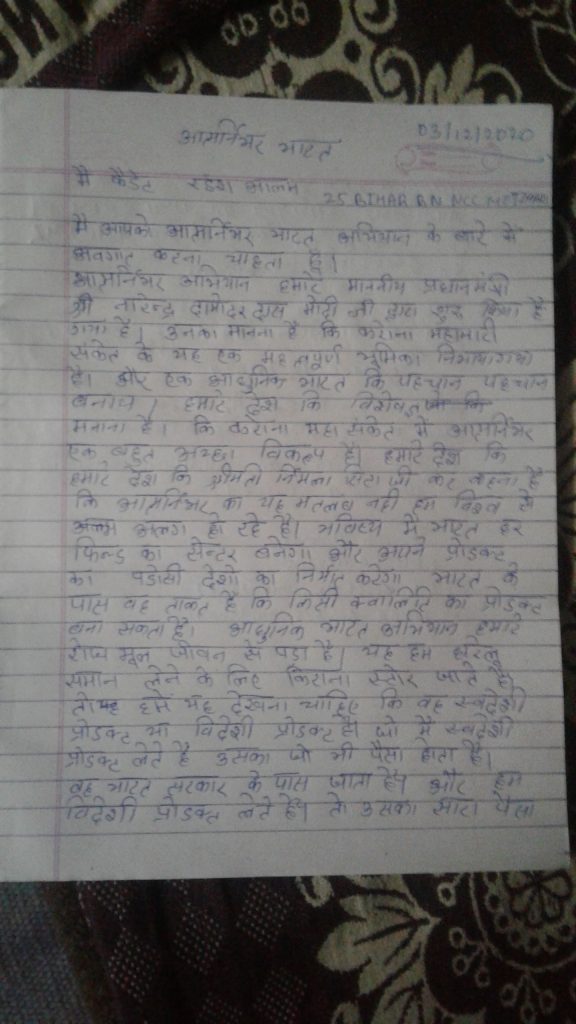 03/12/2020
आत्मर्निभर भारत
मै कैडेट आलम 25 BIHAR BN NCC
मै आपको आत्मर्निभर भारत अभियान के बारे मे
अवगत करना चाहता हूँ।
आत्मर्निभर अभियान हमारे माननीय प्रधानमंत्री
श्री नारेन्द्र दामोदर दास मोदी जी द्वारा शुरू किया है
गया है। उनका मानना है कि करोना महामारी
संकेत के यह एक महत्वपूर्ण भूमिका
है। और एक आधुनिक भारत कि पहचान पहचान
बनाय। हमारे देश कि विशेषज्ञ
मनाना है। कि करोना महा संकेत मे आत्मर्निभर
एक बहुत अच्छा विकल्प है। हमारे देश कि
हमारे देश कि श्रीमती र्निमला सिता जी कर कहना है
कि आत्मर्निभर का यह मतलब नही हम विश्व से
अलग अलग हो रहे है। भविष्य मे भारत हर
फिल्ड का सेन्टर बनेगा और अपने प्रोडक्ट
का पडोसी देशो का निर्यात करेगा भारत के
पास वह ताकत है कि किसी क्वालिटि का प्रोडक्ट
बना सकता है। आधुनिक भारत अभियान हमारे
मूल जीवन से पड़ा है। यह हम घरेलू
समान लेने के लिए किराना स्टोर जाते है
हमे यह देखना चाहिए कि वह स्वदेशी
प्रोडक्ट या विदेशी प्रोडक्ट है। जो मै स्वदेशी
प्रोडक्ट लेते है उसका जो भी पैसा होता है।
वह भारत सरकार के पास जाता है। और हम
विदेशी प्रोडक्ट लेते है। तो उसका सारा पैसा